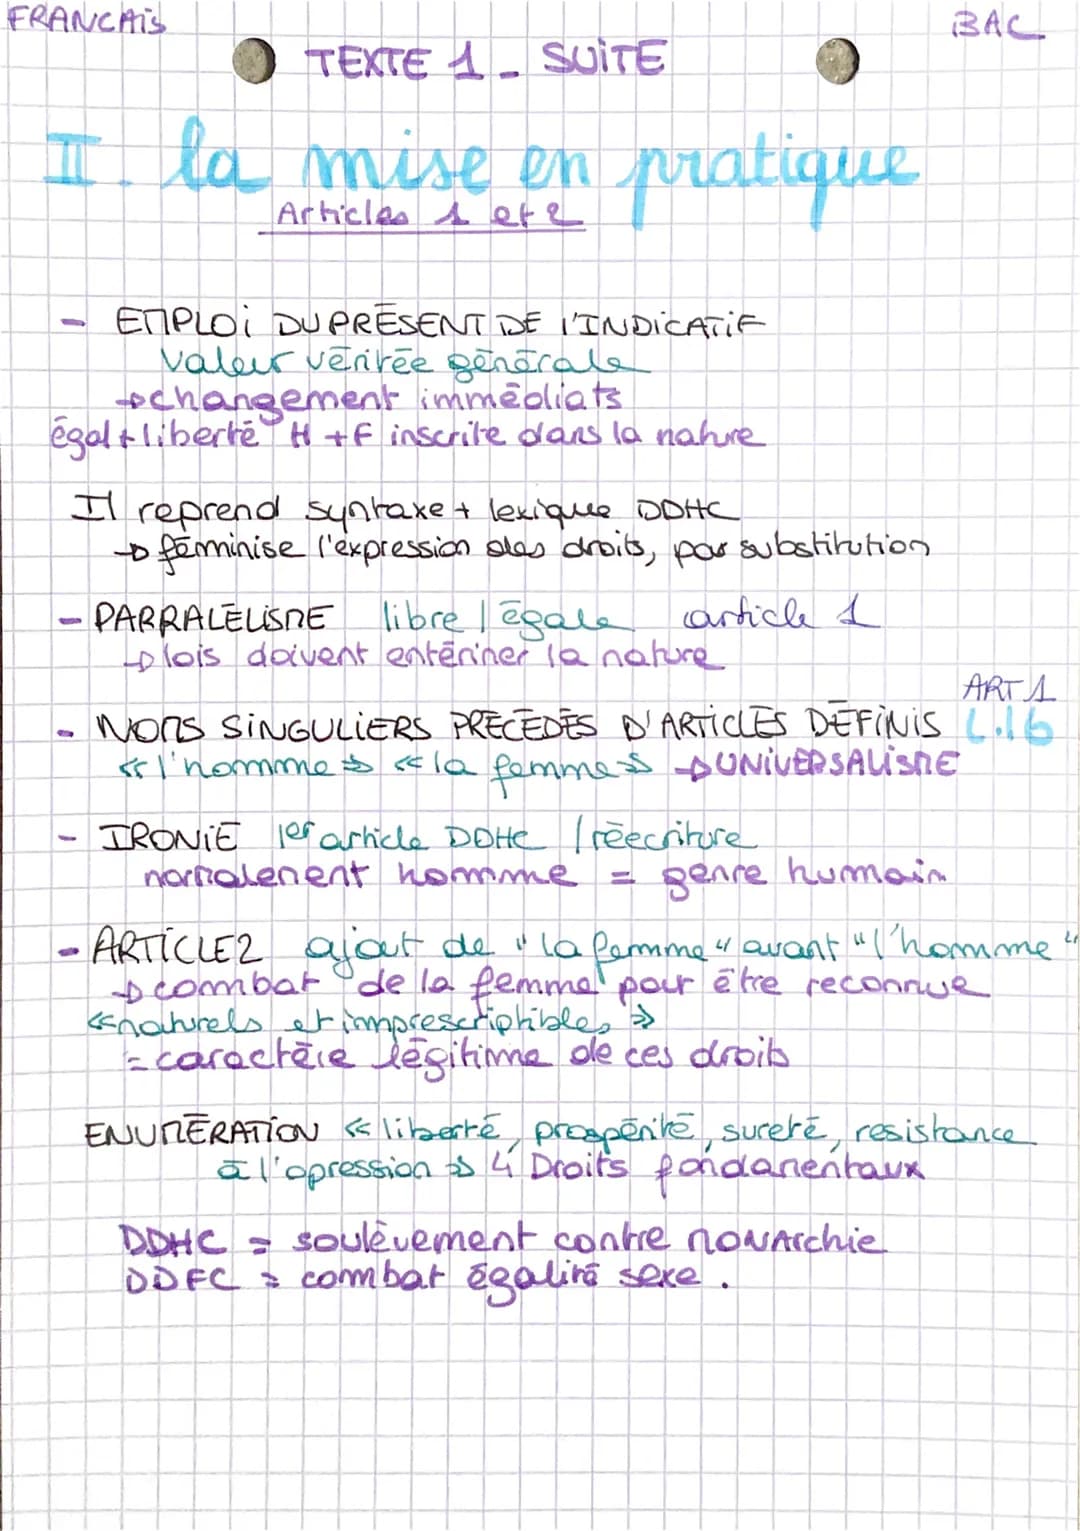 FRANCAIS
BAC
TEXTE 1 - SUITE
II. la mise en pratique
Articles 1 et 2
- EMPLOI DU PRÉSENT DE l'INDICATIF
valeur véritée générale
→ changement immédiats
égal + liberté H + F inscrite dans la nature
Il reprend syntaxe + lexique DDHC
→ féminise l'expression des droits, par substitution
- PARRALÉLISME libre / égale article 1
→ lois doivent entériner la nature
ART 1
- NOMS SINGULIERS PRÉCÉDÉS D'ARTICLES DÉFINIS L.16
« l'homme » « la femme » → UNIVERSALISME
- IRONIE 1er article DDHC / réecriture
normalement homme = genre humain
- ARTICLE 2 ajout de "la femme" avant "l'homme"
→ combat de la femme pour être reconnue
« naturels et imprescriptibles »
= caractère légitime de ces droits
ENUMÉRATION « liberté, prospérité, sureté, resistance
à l'opression » 4 Droits fondamentaux
DDHC = soulèvement contre monarchie
DDFC = combat égalité sexe.